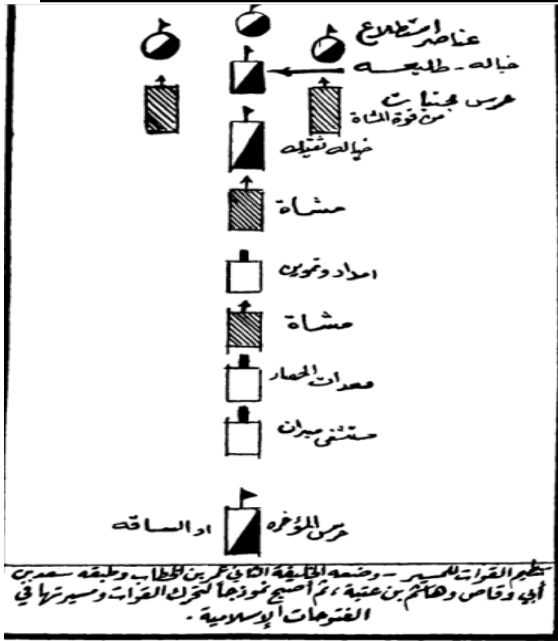 عناصر استطلاع
خياله - طليعه
حرس مجنبات
من قوة المشاة
خياله ثقيله
مشاة
امداد وتموين
مشاة
معدات الحصار
مستشفى ميدان
حرس المؤخره او الساقه
تنظيم القوات للمسير - وضعه الخليفة الثاني عمر بن الخطاب وطبقه سعد بن
أبي وقاص وهاشم بن عتبة ، ثم أصبح نموذجا لتحرك القوات ومسيرتها في
الفتوحات الإسلامية .